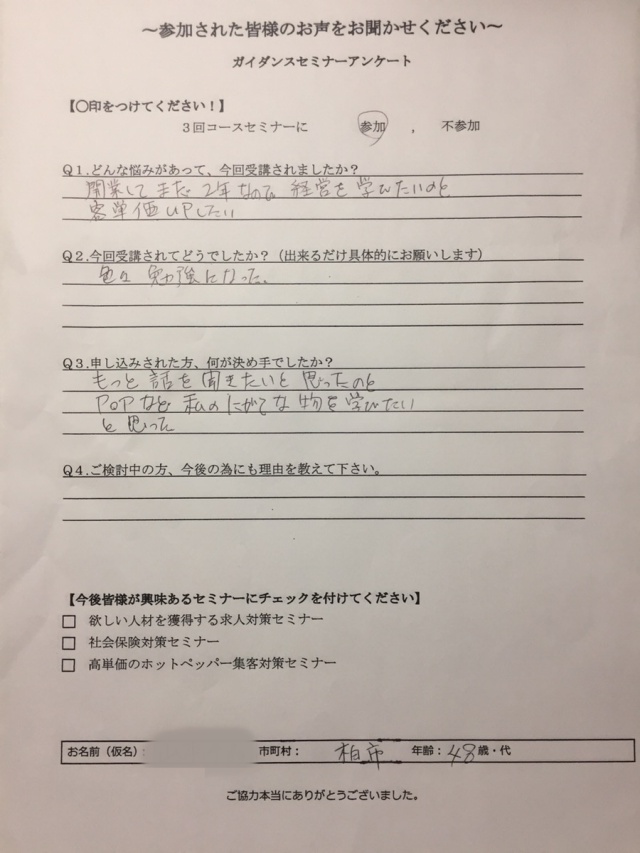 ～参加された皆様のお声をお聞かせください～
ガイダンスセミナーアンケート
【〇印をつけてください！】
3回コースセミナーに 参加 , 不参加
Q1.どんな悩みがあって、今回受講されましたか？
開業してまだ2年なので 経営を学びたいのと
客単価UPしたい
Q2.今回受講されてどうでしたか？（出来るだけ具体的にお願いします）
色々 勉強になった。
Q3.申し込みされた方、何が決め手でしたか？
もっと話を聞きたいと思ったのと
POPなど 私のにがてな物を学びたい
と思った
Q4.ご検討中の方、今後の為にも理由を教えて下さい。
【今後皆様が興味あるセミナーにチェックを付けてください】
□ 欲しい人材を獲得する求人対策セミナー
□ 社会保険対策セミナー
□ 高単価のホットペッパー集客対策セミナー
お名前（仮名） 市町村： 柏市 年齢：48歳・代
ご協力本当にありがとうございました。